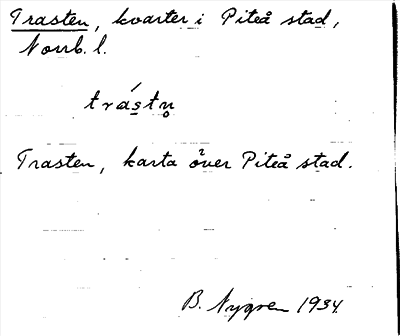 Trasten, kvarter i Piteå stad,
Norrb. l.
trástn̥
Trasten, karta över Piteå stad.
B. Nygren 1934.